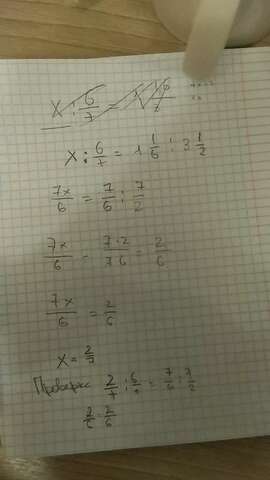 x : 6/7 = 1 1/6 : 3 1/2
7x/6 = 7/6 : 7/2
7x/6 = 7·2/7 6 = 2/6
7x/6 = 2/6
x = 2/7
Проверка 2/7 : 6/7 = 7/6 : 7/2
2/6 = 2/6